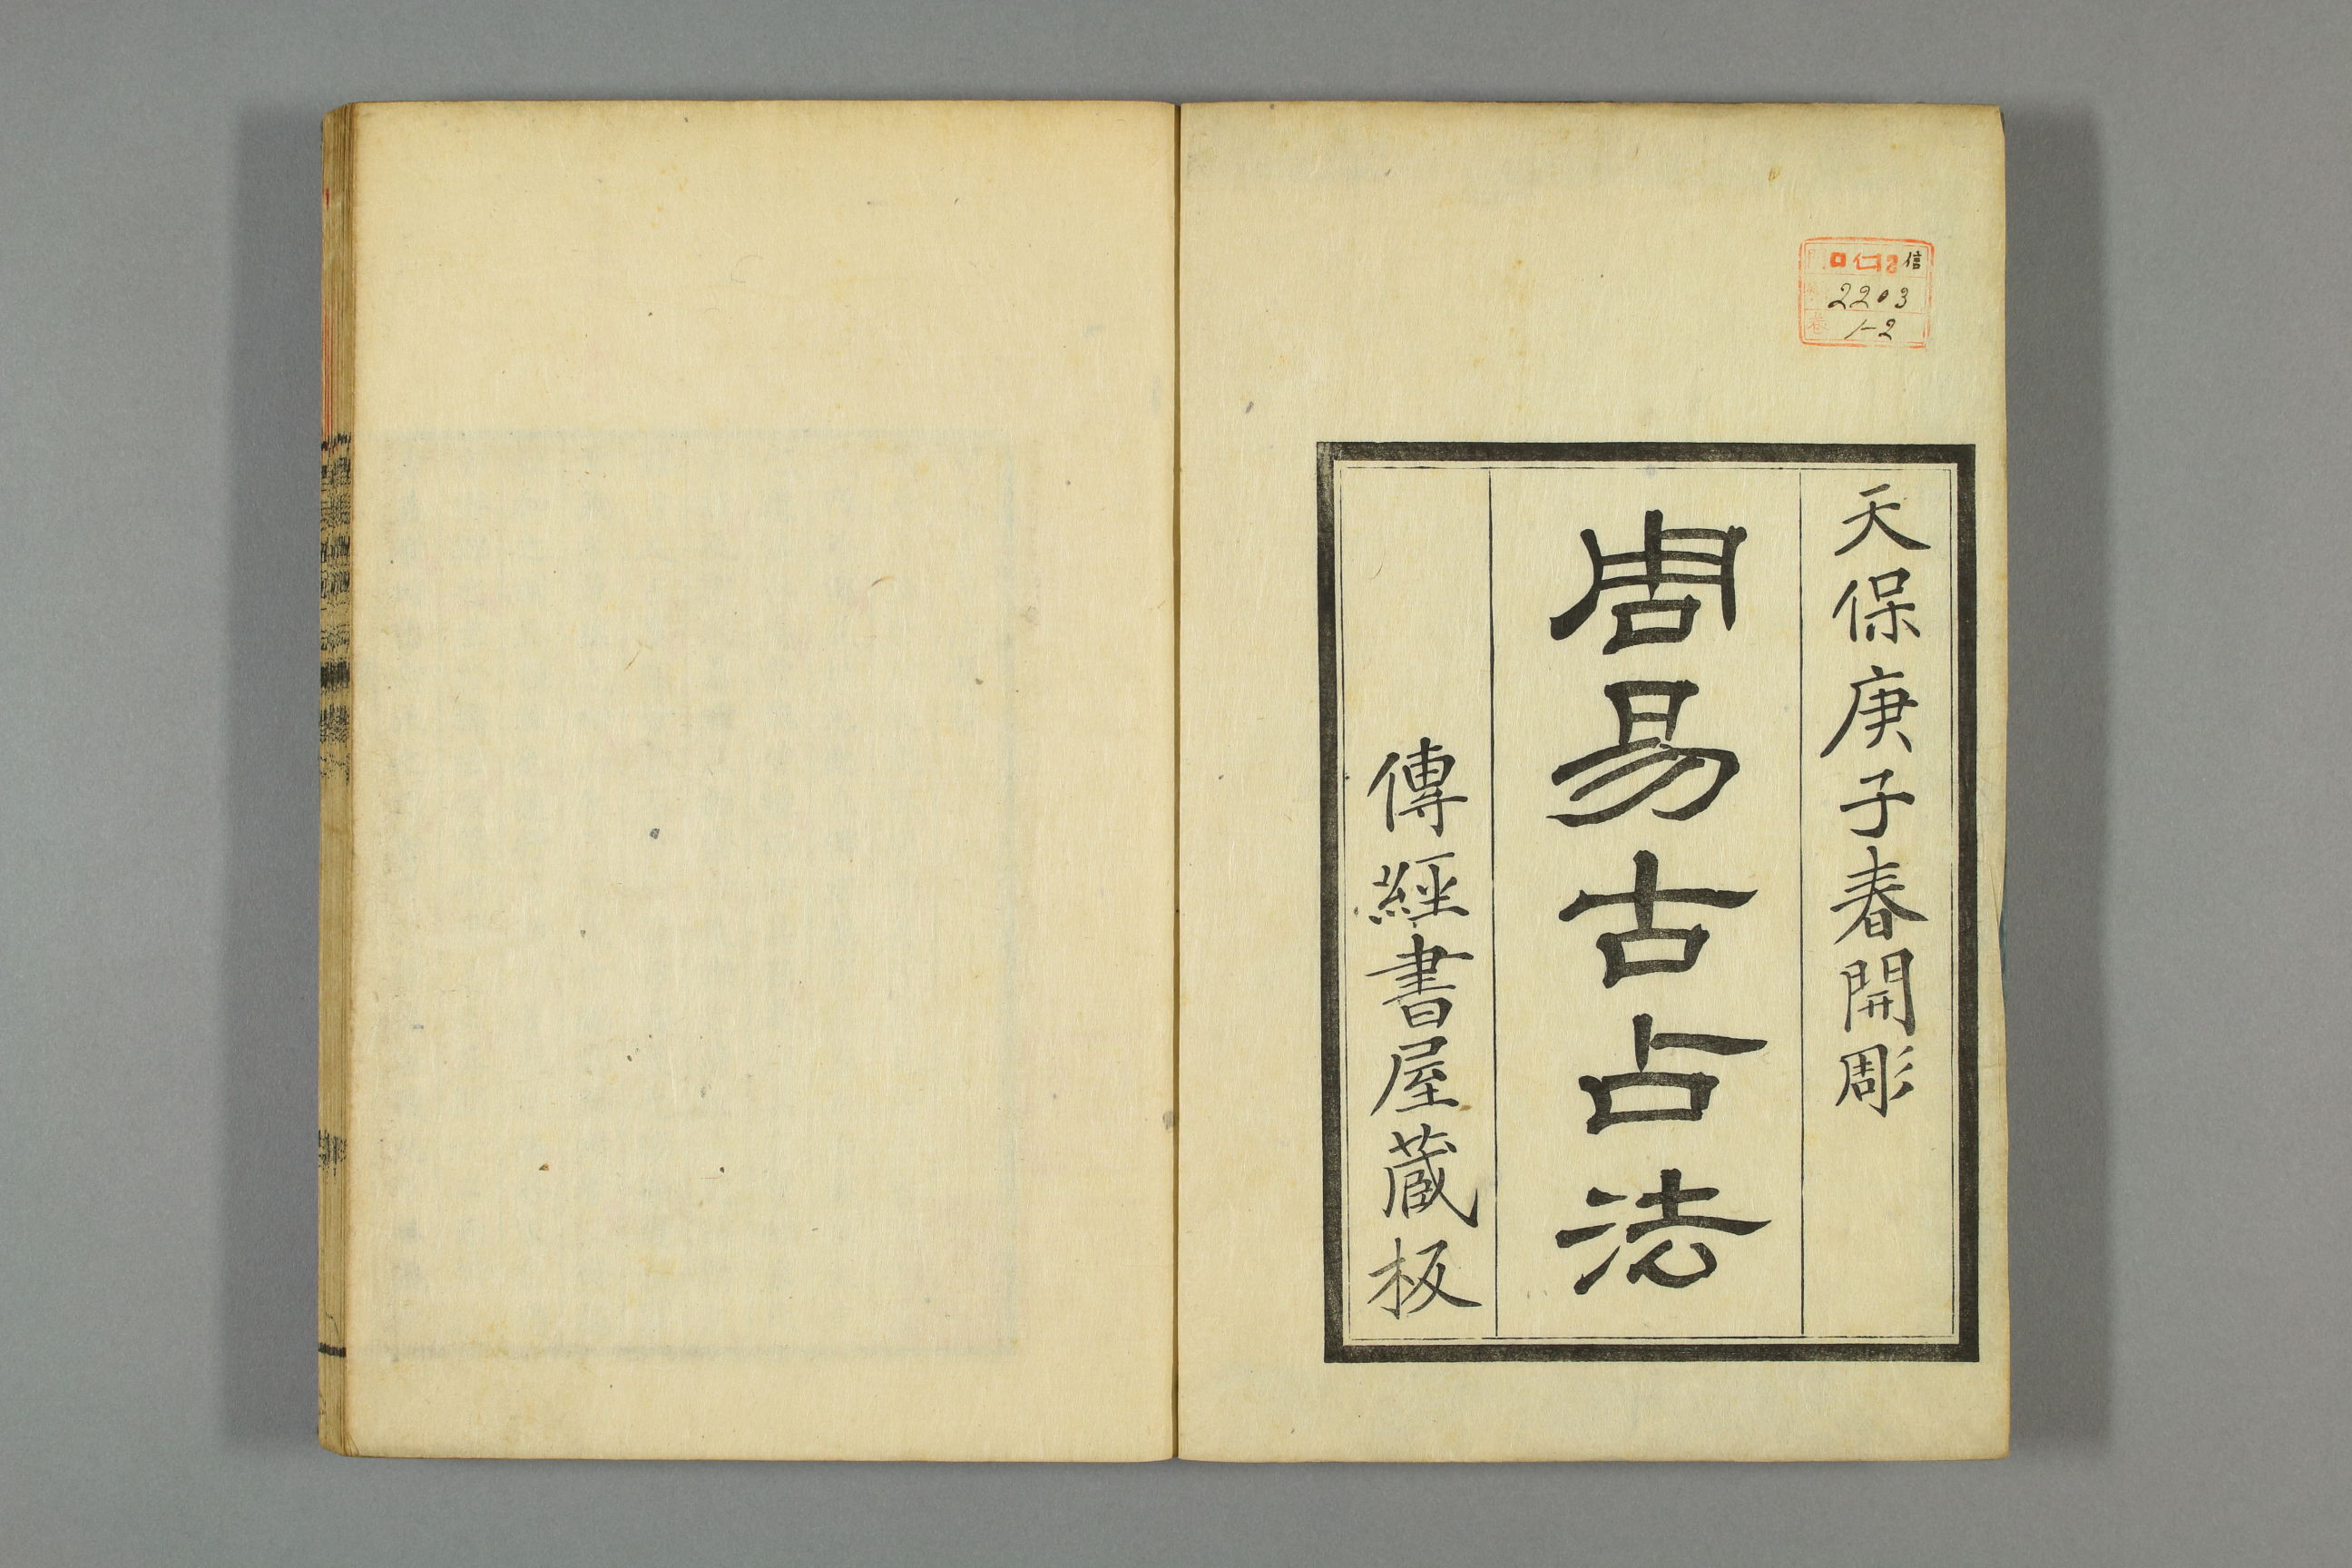 天保庚子春開彫
周易古占法
傳經書屋蔵板
信
2203
1-2